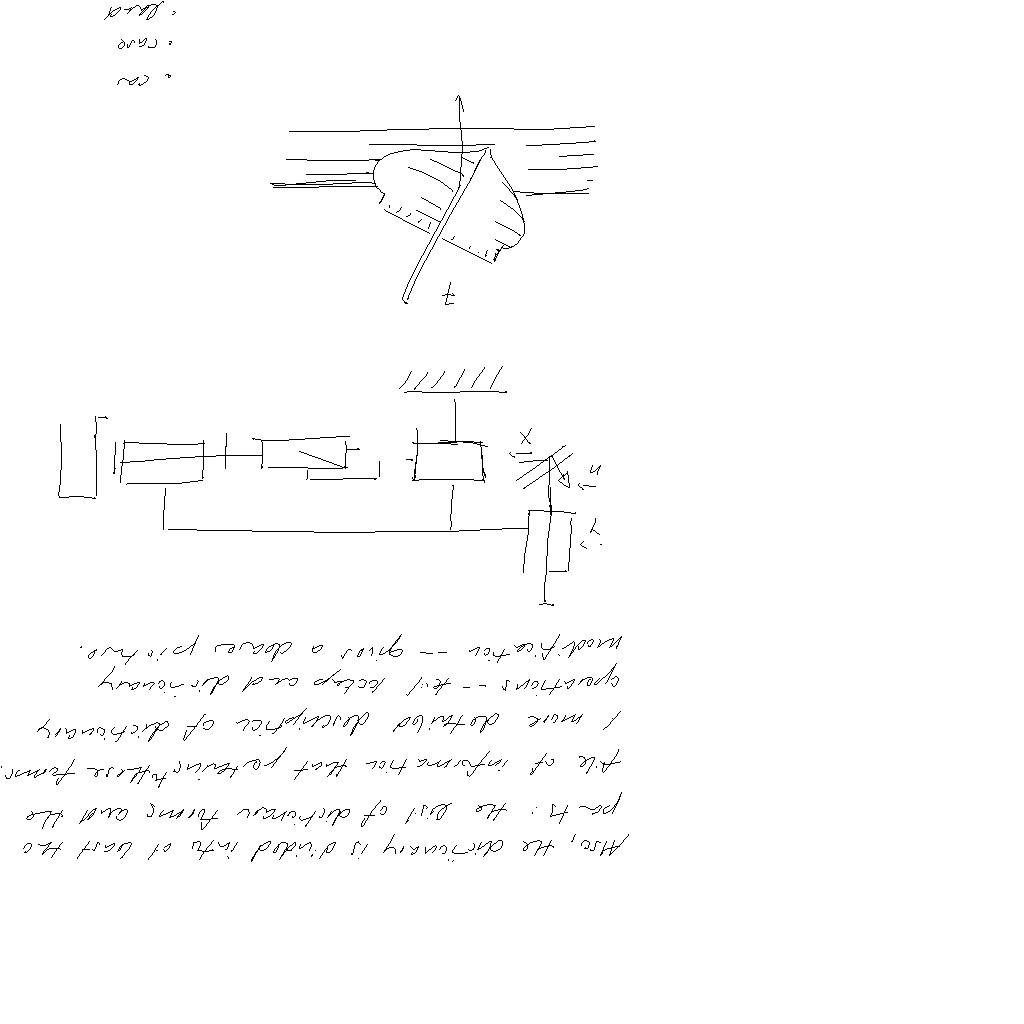 Also, the dictionary is divided into at least two
parts: the list of dictionary forms and the
file of information that pertains to these forms.
A more detailed description of dictionary
operations -- text lookup and dictionary
modification -- gives a clearer picture.
X
• case